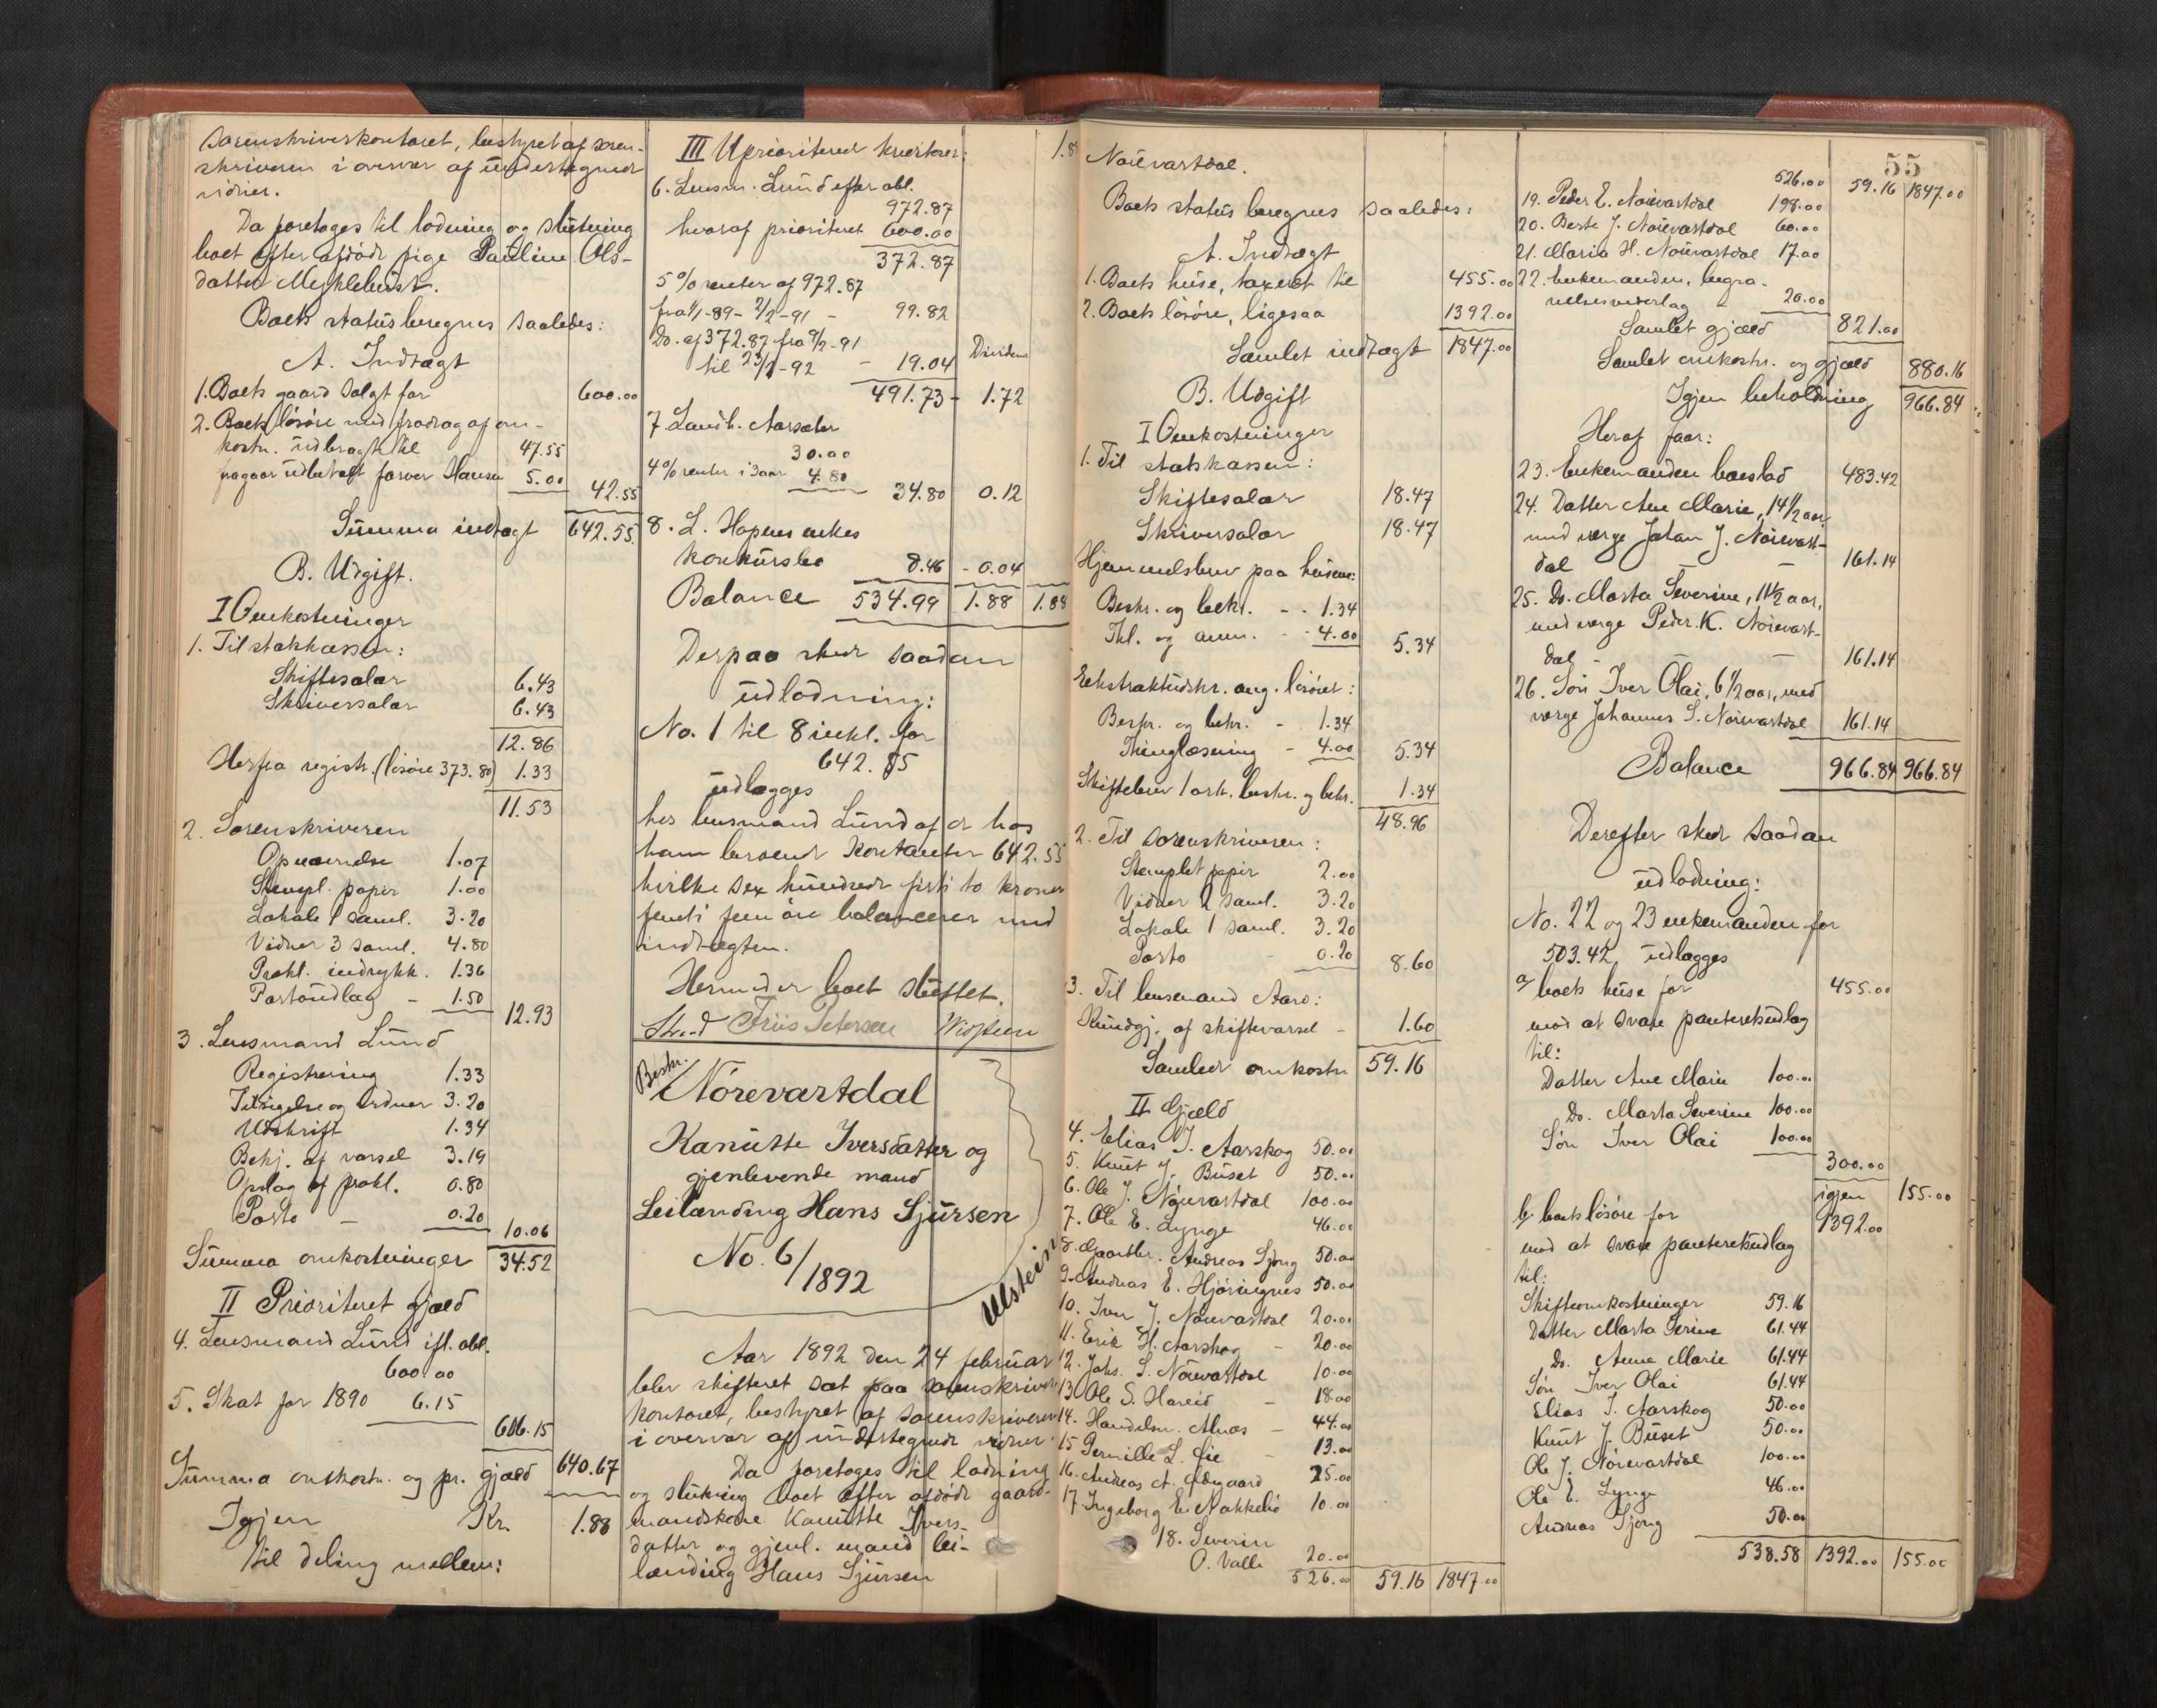 Sorenskriverkontoret, bestyret af soren-
skriveren i overvær af undertegnede
vidner.
Da foretoges til lodning og slutning
boet efter afdøde pige Pauline Ols-
datter Myklebust.
Boets status beregnes saaledes:
A. Indtægt
1. Boets gaard solgt for 600.00
2. Boets løsøre med fradrag af om-
kostn. udbragt til 47.55
fragaar udbetalt farver Hansen 5.00 42.55
Summa indtægt 642.55
B. Udgift.
I Omkostninger
1. Til statskassen:
Skiftesalær 6.43
Skriversalær 6.43
12.86
Herfra registr. (løsøre 373.80) 1.33
11.53
2. Sorenskriveren
Opnævnelse 1.07
Stempl. papir 1.00
Lokale 1 saml. 3.20
Vidner 3 saml. 4.80
Prokl. indrykk. 1.36
Portoudlæg - 1.50 12.93
3. Lensmand Lund
Registrering 1.33
Tilsigelse og Ordner 3.20
Udskrift 1.34
Bekj. af varsel 3.19
Opslag af prokl. 0.80
Porto - 0.20 10.06
Summa omkostninger 34.52
II Prioriteret gjæld
4. Lensmand Lund ifl. obl.
600.00
5. Skat for 1890 6.15
606.15
Summa omkostn. og pr. gjæld 640.67
Igjen Kr. 1.88
til deling mellem:
III Uprioriterede kreditorer: 1.88
6. Lensm. Lund efter obl.
972.87
hvoraf prioriteret 600.00
372.87
5 % renter af 972.87
fra 1/1-89 - 2/2-91 - 99.82
Do. af 372.87 fra 2/2-91
til 23/2-92 - 19.04 Dividende
491.73 - 1.72
7. Landh. Aarsæter
30.00
4 % renter i 3 aar 4.80 34.80 0.12
8. L. Hopens enkes
konkursbo 8.46 - 0.04
Balance 534.99 1.88 1.88
Derpaa skede saadan
udlodning:
No. 1 til 8 inkl. for
642.55
udlægges
hos lensmand Lund af de hos
ham beroende kontanter 642.55
hvilke sex hundrede firti to kroner
femti fem øre balancerer med
indtægten.
Hermed er boet sluttet.
Friis Petersen
Beskr.
Nörevartdal
Kanutte Iversdatter og
gjenlevende mand
Leilænding Hans Sjursen
No. 6/1892
Ulstein
Aar 1892 den 24 februar
blev skifteret sat paa sorenskriver
kontoret, bestyret af sorenskriveren
i overvær af undertegnede vidner.
Da foretoges til lodning
og slutning boet efter afdøde gaard-
mandskone Kanutte Ivers-
datter og gjenl. mand lei-
lænding Hans Sjursen
Nörevartdal.
Boets status beregnes saaledes:
A. Indtægt
1. Boets huse, taxeret til 455.00
2. Boets løsøre, ligesaa 1392.00
Samlet indtægt 1847.00
B. Udgift
I Omkostninger
1. Til statskassen:
Skiftesalær 18.47
Skriversalær 18.47
Hjemmelsbrev paa husene:
Beskr. og bekr. - - 1.34
Thl. og anm. - - 4.00 5.34
Eekstraktudskr. ang. løsøret:
Beskr. og bekr. - 1.34
Thinglæsning - 4.00 5.34
Skiftebrev 1 ark. beskr. og bekr. 1.34
48.96
2. Til sorenskriveren:
Stemplet papir 2.00
Vidner 2 saml. 3.20
Lokale 1 saml. 3.20
Porto - 0.20 8.60
3. Til lensmand Aarø:
Kundgj. af skiftevarsel - 1.60
Samlede omkostn 59.16
II Gjæld
4. Elias I. Aarskog 50.00
5. Knut J. Buset 50.00
6. Ole J. Nörevartdal 100.00
7. Ole E. Lynge 46.00
8. Gaardbr. Andreas Sjong 50.00
9. Andreas E. Hjörungnes 50.00
10. Iver J. Nörevartdal 20.00
11. Erik H. Aarskog - 20.00
12. Johs. S. Nörevartdal 10.00
13. Ole S. Hareid - 18.00
14. Handelsm. Almås - 44.00
15 Pernille L. Lie - 13.00
16. Andreas A. Ødegaard 25.00
17. Ingeborg E. Nakkelid 10.00
18. Severin
O. Valle 20.00
526.00 59.16 1847.00
55
526.00 59.16 1847.00
19. Peder E. Nörevartdal 198.00
20. Berte J. Nörevartdal 60.00
21. Maria H. Nörevartdal 17.00
22. Enkemanden, begra-
velsesvederlag - 20.00
Samlet gjæld 821.00
Samlet omkostn. og gjæld 880.16
Igjen beholdning 966.84
Heraf faar:
23. Enkemanden boeslod 483.42
24. Datter Ane Marie, 14 1/2 aar,
med værge Johan J. Nörevart-
dal - - 161.14
25. Do. Marta Severine, 11 1/2 aar,
med værge Peder K. Nörevart-
dal - - 161.14
26. Søn Iver Olai, 6 1/2 aar, med
værge Johannes S. Nörevartdal 161.14
Balance 966.84 966.84
Derefter skede saadan
udlodning:
No. 22 og 23 enkemanden for
503.42, udlægges
a/ boets huse for 455.00
mod at svare panteretsudlæg
til:
Datter Ane Marie 100.00
Do. Marta Severine 100.00
Søn Iver Olai 100.00
300.00
igjen 155.00
b/ boets løsøre for 1392.00
mod at svare panteretsudlæg
til:
Skifteomkostninger 59.16
Datter Marta Serine 61.44
Do. Anne Marie 61.44
Søn Iver Olai 61.44
Elias I. Aarskog 50.00
Knut J. Buset 50.00
Ole J. Nörevartdal 100.00
Ole E. Lynge 46.00
Andreas Sjong 50.00
538.58 1392.00 155.00